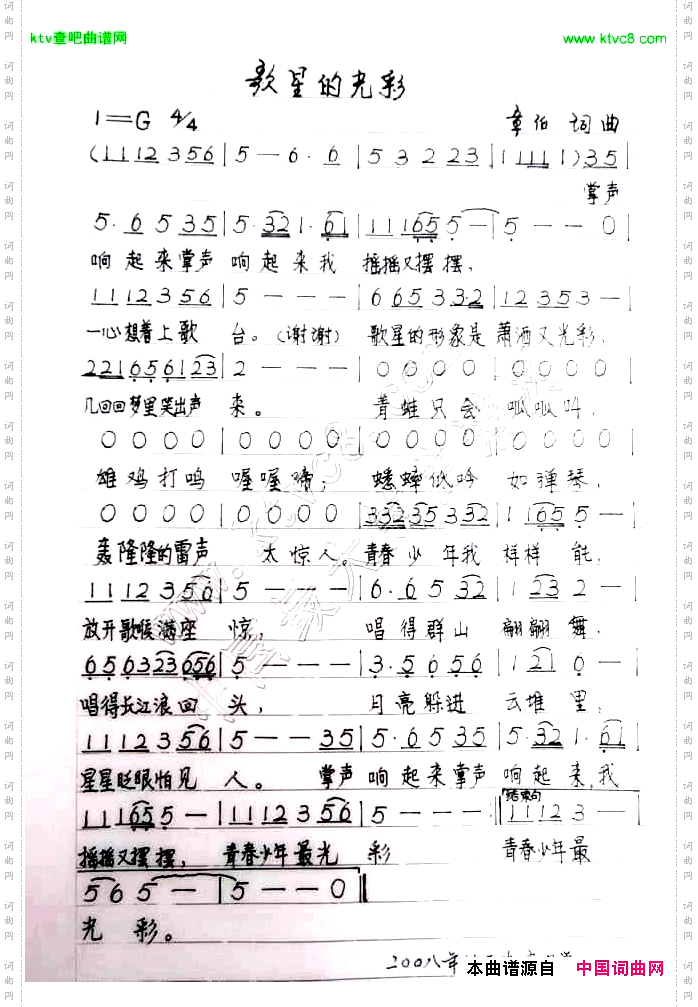 ktv查吧曲谱网 www.ktvc8.com
歌星的光彩
1=G 4/4 章伯 词曲
(1112356|5—6·6|532223|11111)35|
掌声
5·6535|5·321·61|111655—|5——0|
响起来掌声 响起来我 摇摇又摆摆,
1112356|5———|6653332|12353—|
一心想着上歌 台。(谢谢) 歌星的形象是 萧洒又光彩,
221656123|2———|0000|0000|
几回回梦里笑出声 来。 青蛙只会 呱呱叫,
0000|0000|0000|0000|
雄鸡打鸣 喔喔啼; 蟋蟀低吟 如弹琴,
0000|0000|33235332|11655—|
轰隆隆的雷声 太惊人。青春少年我 样样能,
1112356|5———|6·6532|1232—|
放开歌喉满座 惊, 唱得群山 翩翩舞,
656323656|5———|3·5656|1216—|
唱得长江浪回 头, 月亮躲进 云堆里,
1112356|5——35|5·6535|5·321·61|
星星眨眼怕见 人。 掌声 响起来掌声 响起来,我
111655—|1112356|5———:|结束句 11123—|
摇摇又摆摆, 青春少年最光 彩 青春少年最
565—|5——0|
光 彩。
2008年
本曲谱源自 中国词曲网